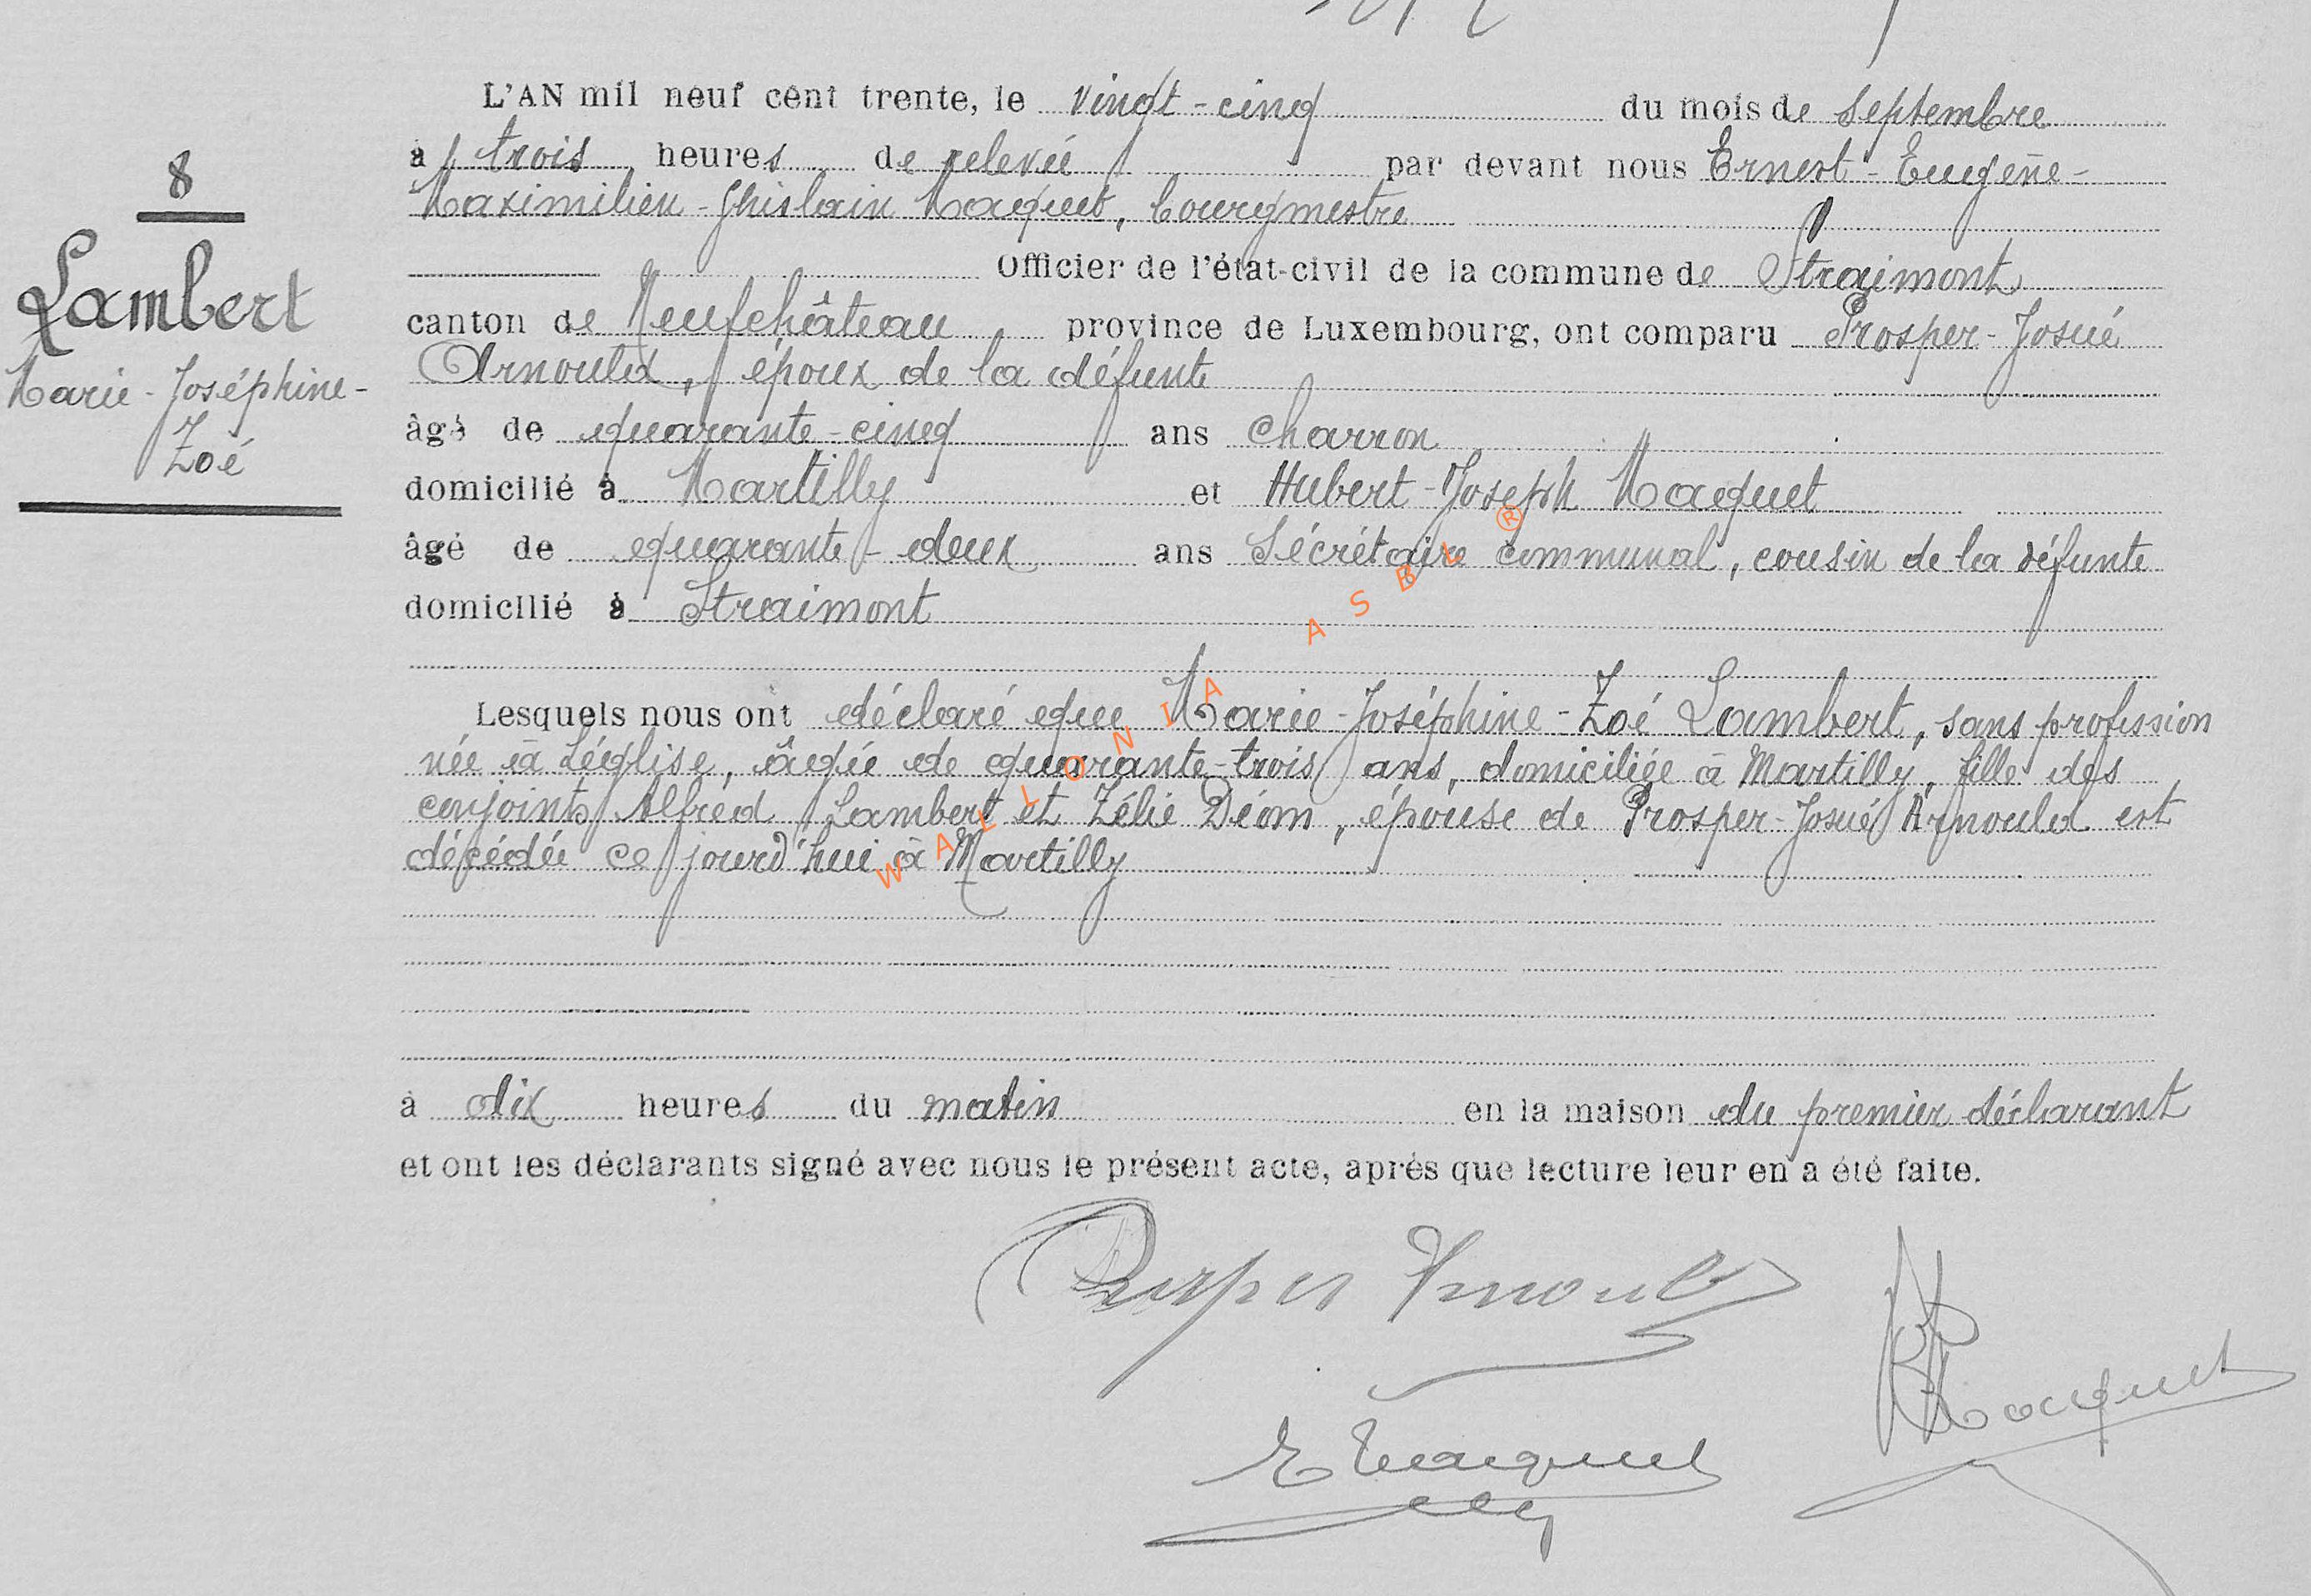 8
Lambert
Marie-Joséphine-
Zoé
L'AN mil neuf cent trente, le vingt-cinq du mois de septembre
à trois heures de relevée par devant nous Ernest-Eugène-
Maximilien-Ghislain Maquet, bourgmestre
Officier de l'état-civil de la commune de Straimont
canton de Neufchâteau province de Luxembourg, ont comparu Prosper-Josué
Arnould, époux de la défunte
âgé de quarante-cinq ans charron
domicilié à Martilly et Hubert-Joseph Maquet
âgé de quarante-deux ans Sécrétaire communal, cousin de la défunte
domicilié à Straimont
Lesquels nous ont déclaré que Marie-Joséphine-Zoé Lambert, sans profession
née à Léglise, âgée de quarante-trois ans, domiciliée à Martilly, fille des
conjoints Alfred Lambert et Zélie Déom, épouse de Prosper-Josué Arnould est
décédée ce jourd'hui à Martilly
à dix heures du matin en la maison du premier déclarant
et ont les déclarants signé avec nous le présent acte, après que lecture leur en a été faite.
Prosper Arnould
Macquet
E Macquet
WALLONIA ASBL ®